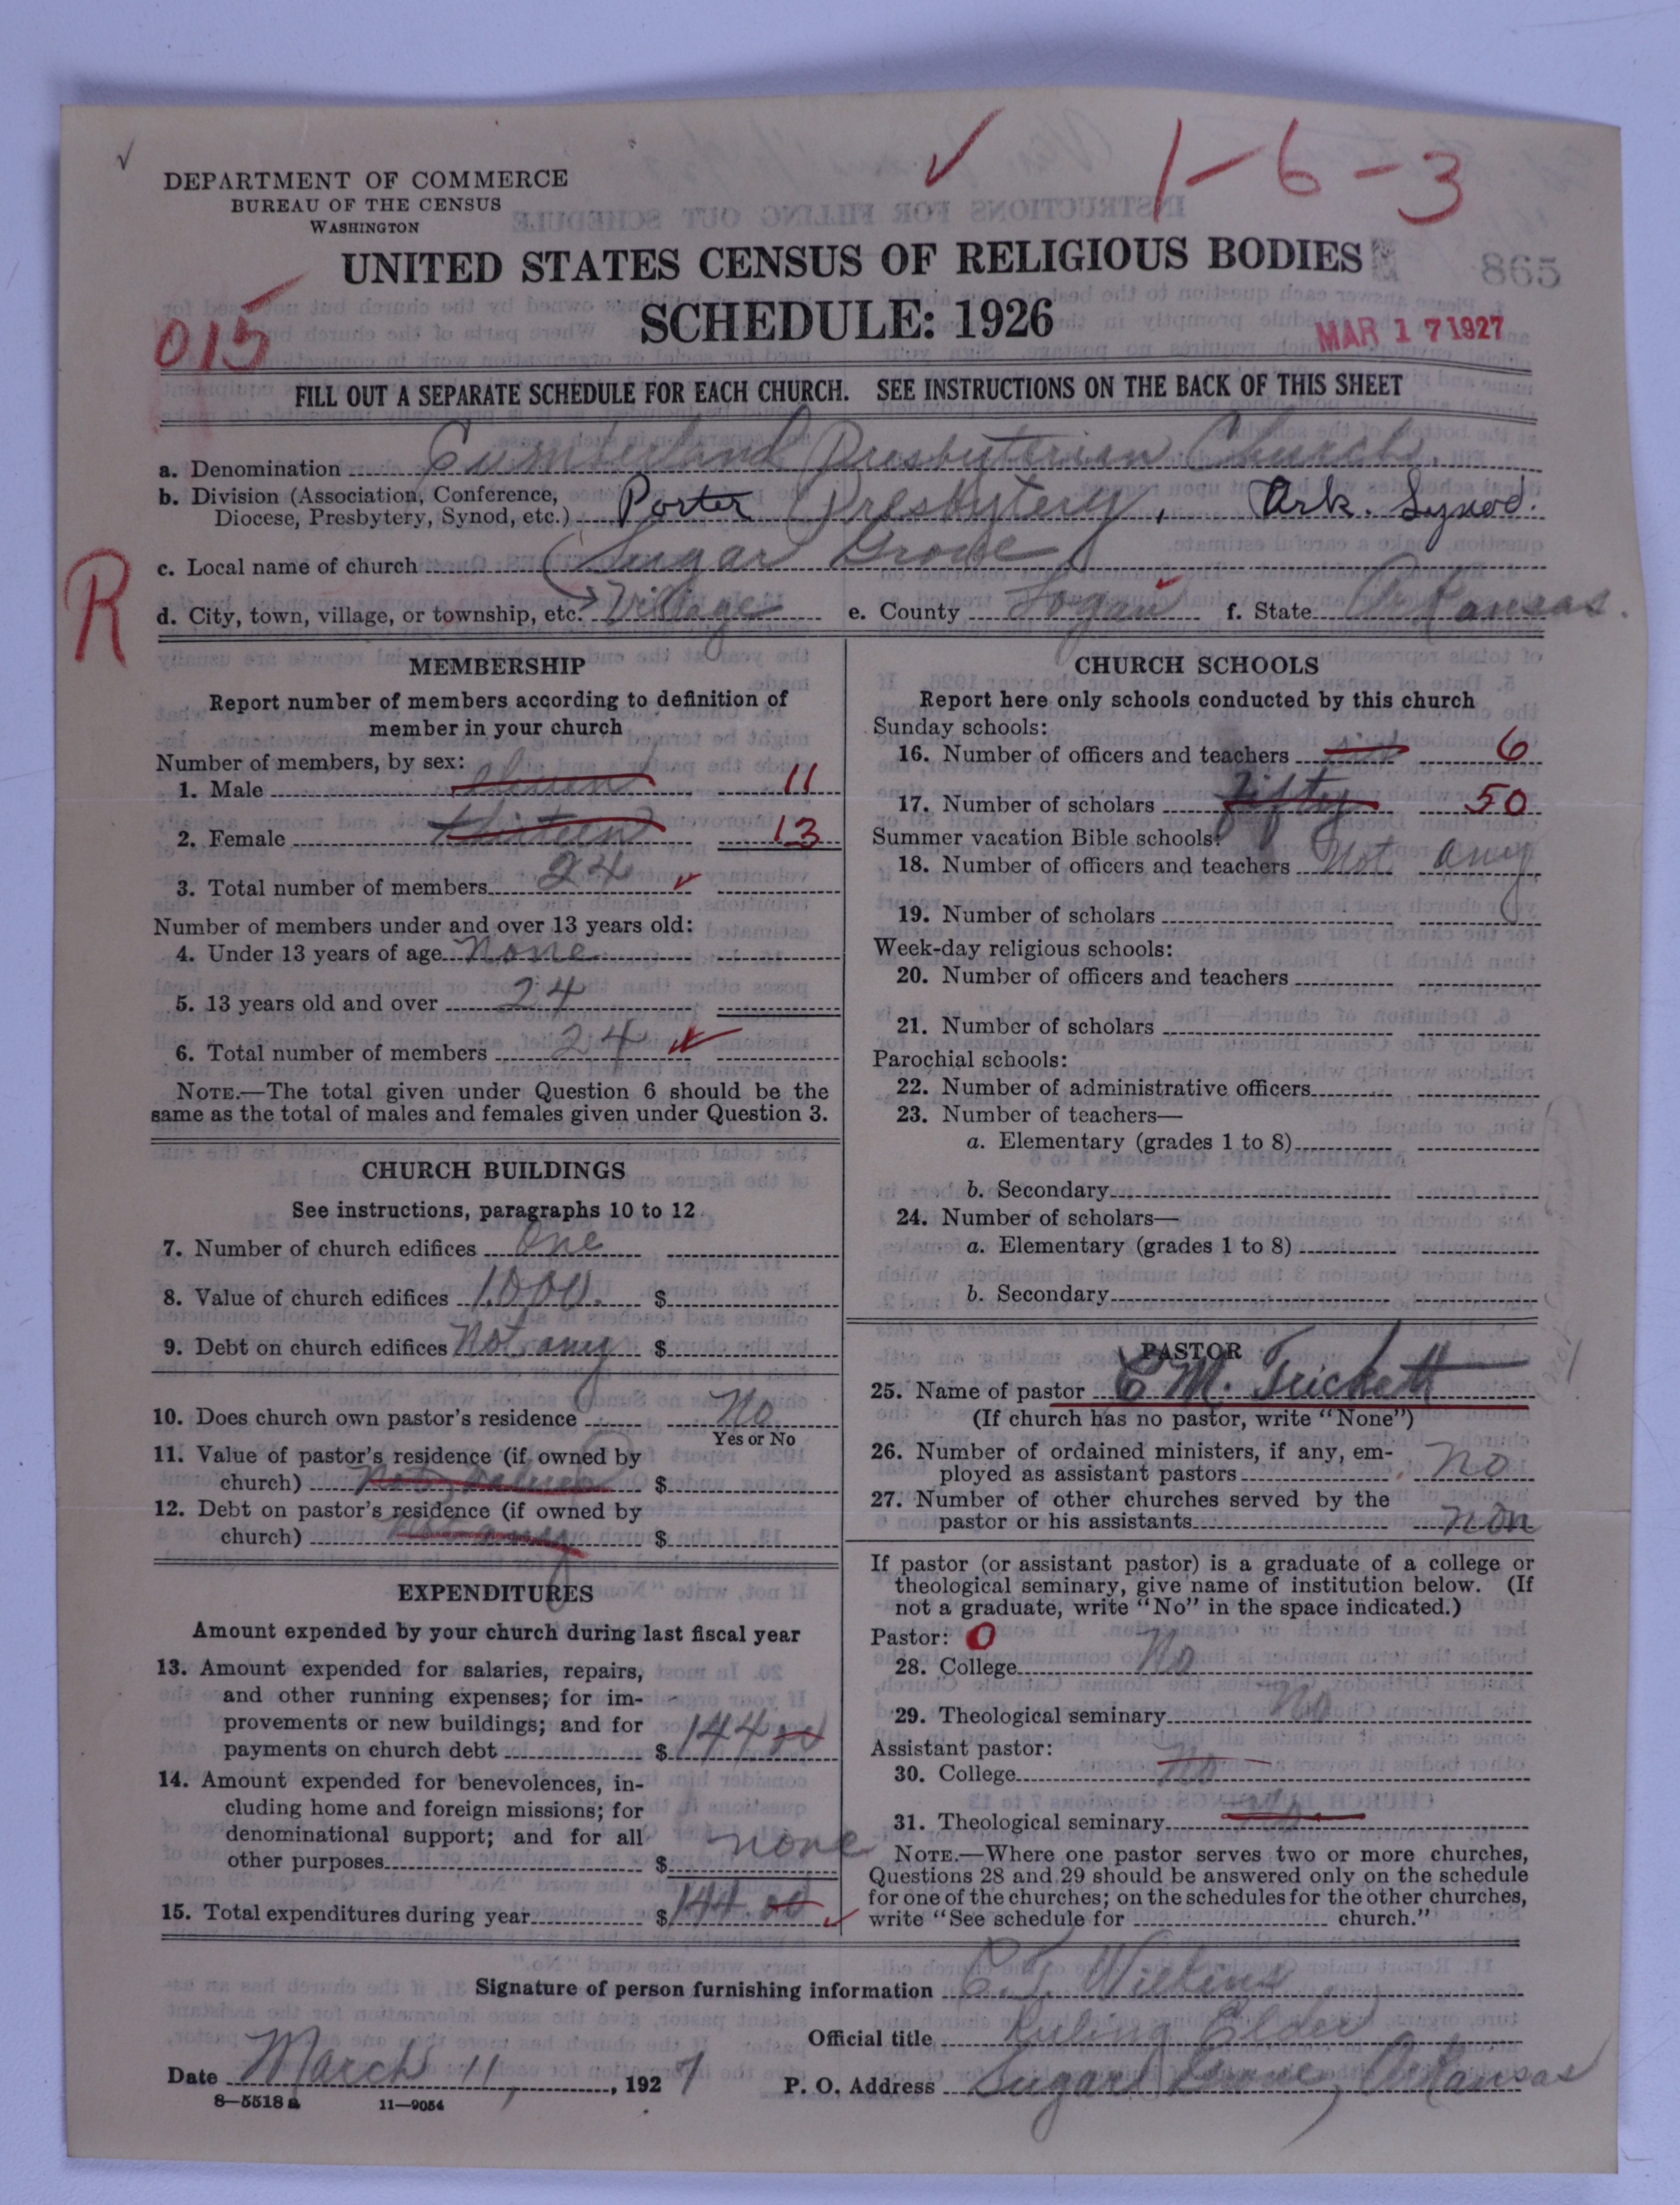 1-6-3
DEPARTMENT OF COMMERCE
BUREAU OF THE CENSUS
WASHINGTON
UNITED STATES CENSUS OF RELIGIOUS BODIES
865
SCHEDULE: 1926
015
MAR 17 1927
FILL OUT A SEPARATE SCHEDULE FOR EACH CHURCH. SEE INSTRUCTIONS ON THE BACK OF THIS SHEET
a. Denomination Cumberland Presbyterian Church.
b. Division (Association, Conference,
Diocese, Presbytery, Synod, etc.) Porter Presbytery, Ark. Synod.
R
c. Local name of church Sugar Grove
d. City, town, village, or township, etc. Village e. County Logan f. State Arkansas.
MEMBERSHIP
Report number of members according to definition of
member in your church
Number of members, by sex:
1. Male eleven 11
2. Female thirteen 13
3. Total number of members 24
Number of members under and over 13 years old:
4. Under 13 years of age none
5. 13 years old and over 24
6. Total number of members 24
NOTE.—The total given under Question 6 should be the
same as the total of males and females given under Question 3.
CHURCH BUILDINGS
See instructions, paragraphs 10 to 12
7. Number of church edifices One
8. Value of church edifices 1,000. $
9. Debt on church edifices Not any $
10. Does church own pastor's residence No
Yes or No
11. Value of pastor's residence (if owned by
church) Not $
12. Debt on pastor's residence (if owned by
church) Not any $
EXPENDITURES
Amount expended by your church during last fiscal year
13. Amount expended for salaries, repairs,
and other running expenses; for im-
provements or new buildings; and for
payments on church debt $ 144 00
14. Amount expended for benevolences, in-
cluding home and foreign missions; for
denominational support; and for all
other purposes $ none
15. Total expenditures during year $ 144.00
CHURCH SCHOOLS
Report here only schools conducted by this church
Sunday schools:
16. Number of officers and teachers six 6
17. Number of scholars fifty 50
Summer vacation Bible schools:
18. Number of officers and teachers Not any
19. Number of scholars
Week-day religious schools:
20. Number of officers and teachers
21. Number of scholars
Parochial schools:
22. Number of administrative officers
23. Number of teachers—
a. Elementary (grades 1 to 8)
b. Secondary
24. Number of scholars—
a. Elementary (grades 1 to 8)
b. Secondary
PASTOR
25. Name of pastor C M. Trickett
(If church has no pastor, write "None")
26. Number of ordained ministers, if any, em-
ployed as assistant pastors No
27. Number of other churches served by the
pastor or his assistants non
If pastor (or assistant pastor) is a graduate of a college or
theological seminary, give name of institution below. (If
not a graduate, write "No" in the space indicated.)
Pastor: 0
28. College No
29. Theological seminary No
Assistant pastor:
30. College No
31. Theological seminary No
NOTE.—Where one pastor serves two or more churches,
Questions 28 and 29 should be answered only on the schedule
for one of the churches; on the schedules for the other churches,
write "See schedule for church."
Signature of person furnishing information C. T. Wilkins
Official title Ruling Elder
Date March 11, 1927 P. O. Address Sugar Grove, Arkansas
8-5518 a 11-9054